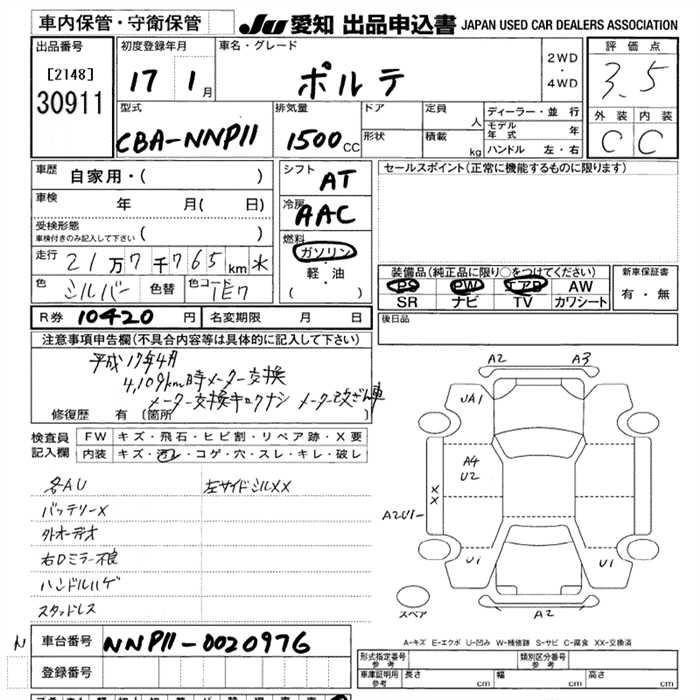 車内保管・守衛保管
JU 愛知 出品申込書 JAPAN USED CAR DEALERS ASSOCIATION
出品番号
[2148]
30911
初度登録年月
17 1月
車名・グレード
ポルテ
2WD
・
4WD
評価点
3.5
外装 内装
C C
型式
CBA-NNP11
排気量
1500CC
ドア
形状
定員 人
積載 kg
ディーラー・並行
モデル年式 年
ハンドル 左・右
車歴 自家用・( )
車検 年 月( 日)
受検形態
車検付きのみ記入して下さい ( )
走行 21万7千765km 米
色 シルバー 色替 色コード 1E7
シフト AT
冷房 AAC
燃料 ガソリン
軽・油
( )
セールスポイント(正常に機能するものに限ります)
装備品(純正品に限り○をつけてください)
PS PW エアB AW
SR ナビ TV カワシート
新車保証書
有・無
後日品
R券 10420円 名変期限 月 日
注意事項申告欄(不具合内容等は具体的に記入して下さい)
平成17年4月
4,109km時メーター交換
メーター交換キロクナシ メーター改ざん車
修復歴 有 〔箇所 〕
検査員
記入欄
FW キズ・飛石・ヒビ割・リペア跡・X要
内装 キズ・汚レ・コゲ・穴・スレ・キレ・破レ
各AU
バッテリーX
外オーディオ
右Dミラー不良
ハンドルハゲ
スタッドレス
左サイドシルXX
A2 A3
UA1
A4
U2
XX
A2U1-
U1 U1
スペア
A2
A-キズ E-エクボ U-凹み W-補修跡 S-サビ C-腐食 XX-交換済
N
車台番号 NNP11-0020976
登録番号
形式指定番号
参考
類別区分番号
参考
車庫証明用
参考
長さ cm 幅 cm 高さ cm